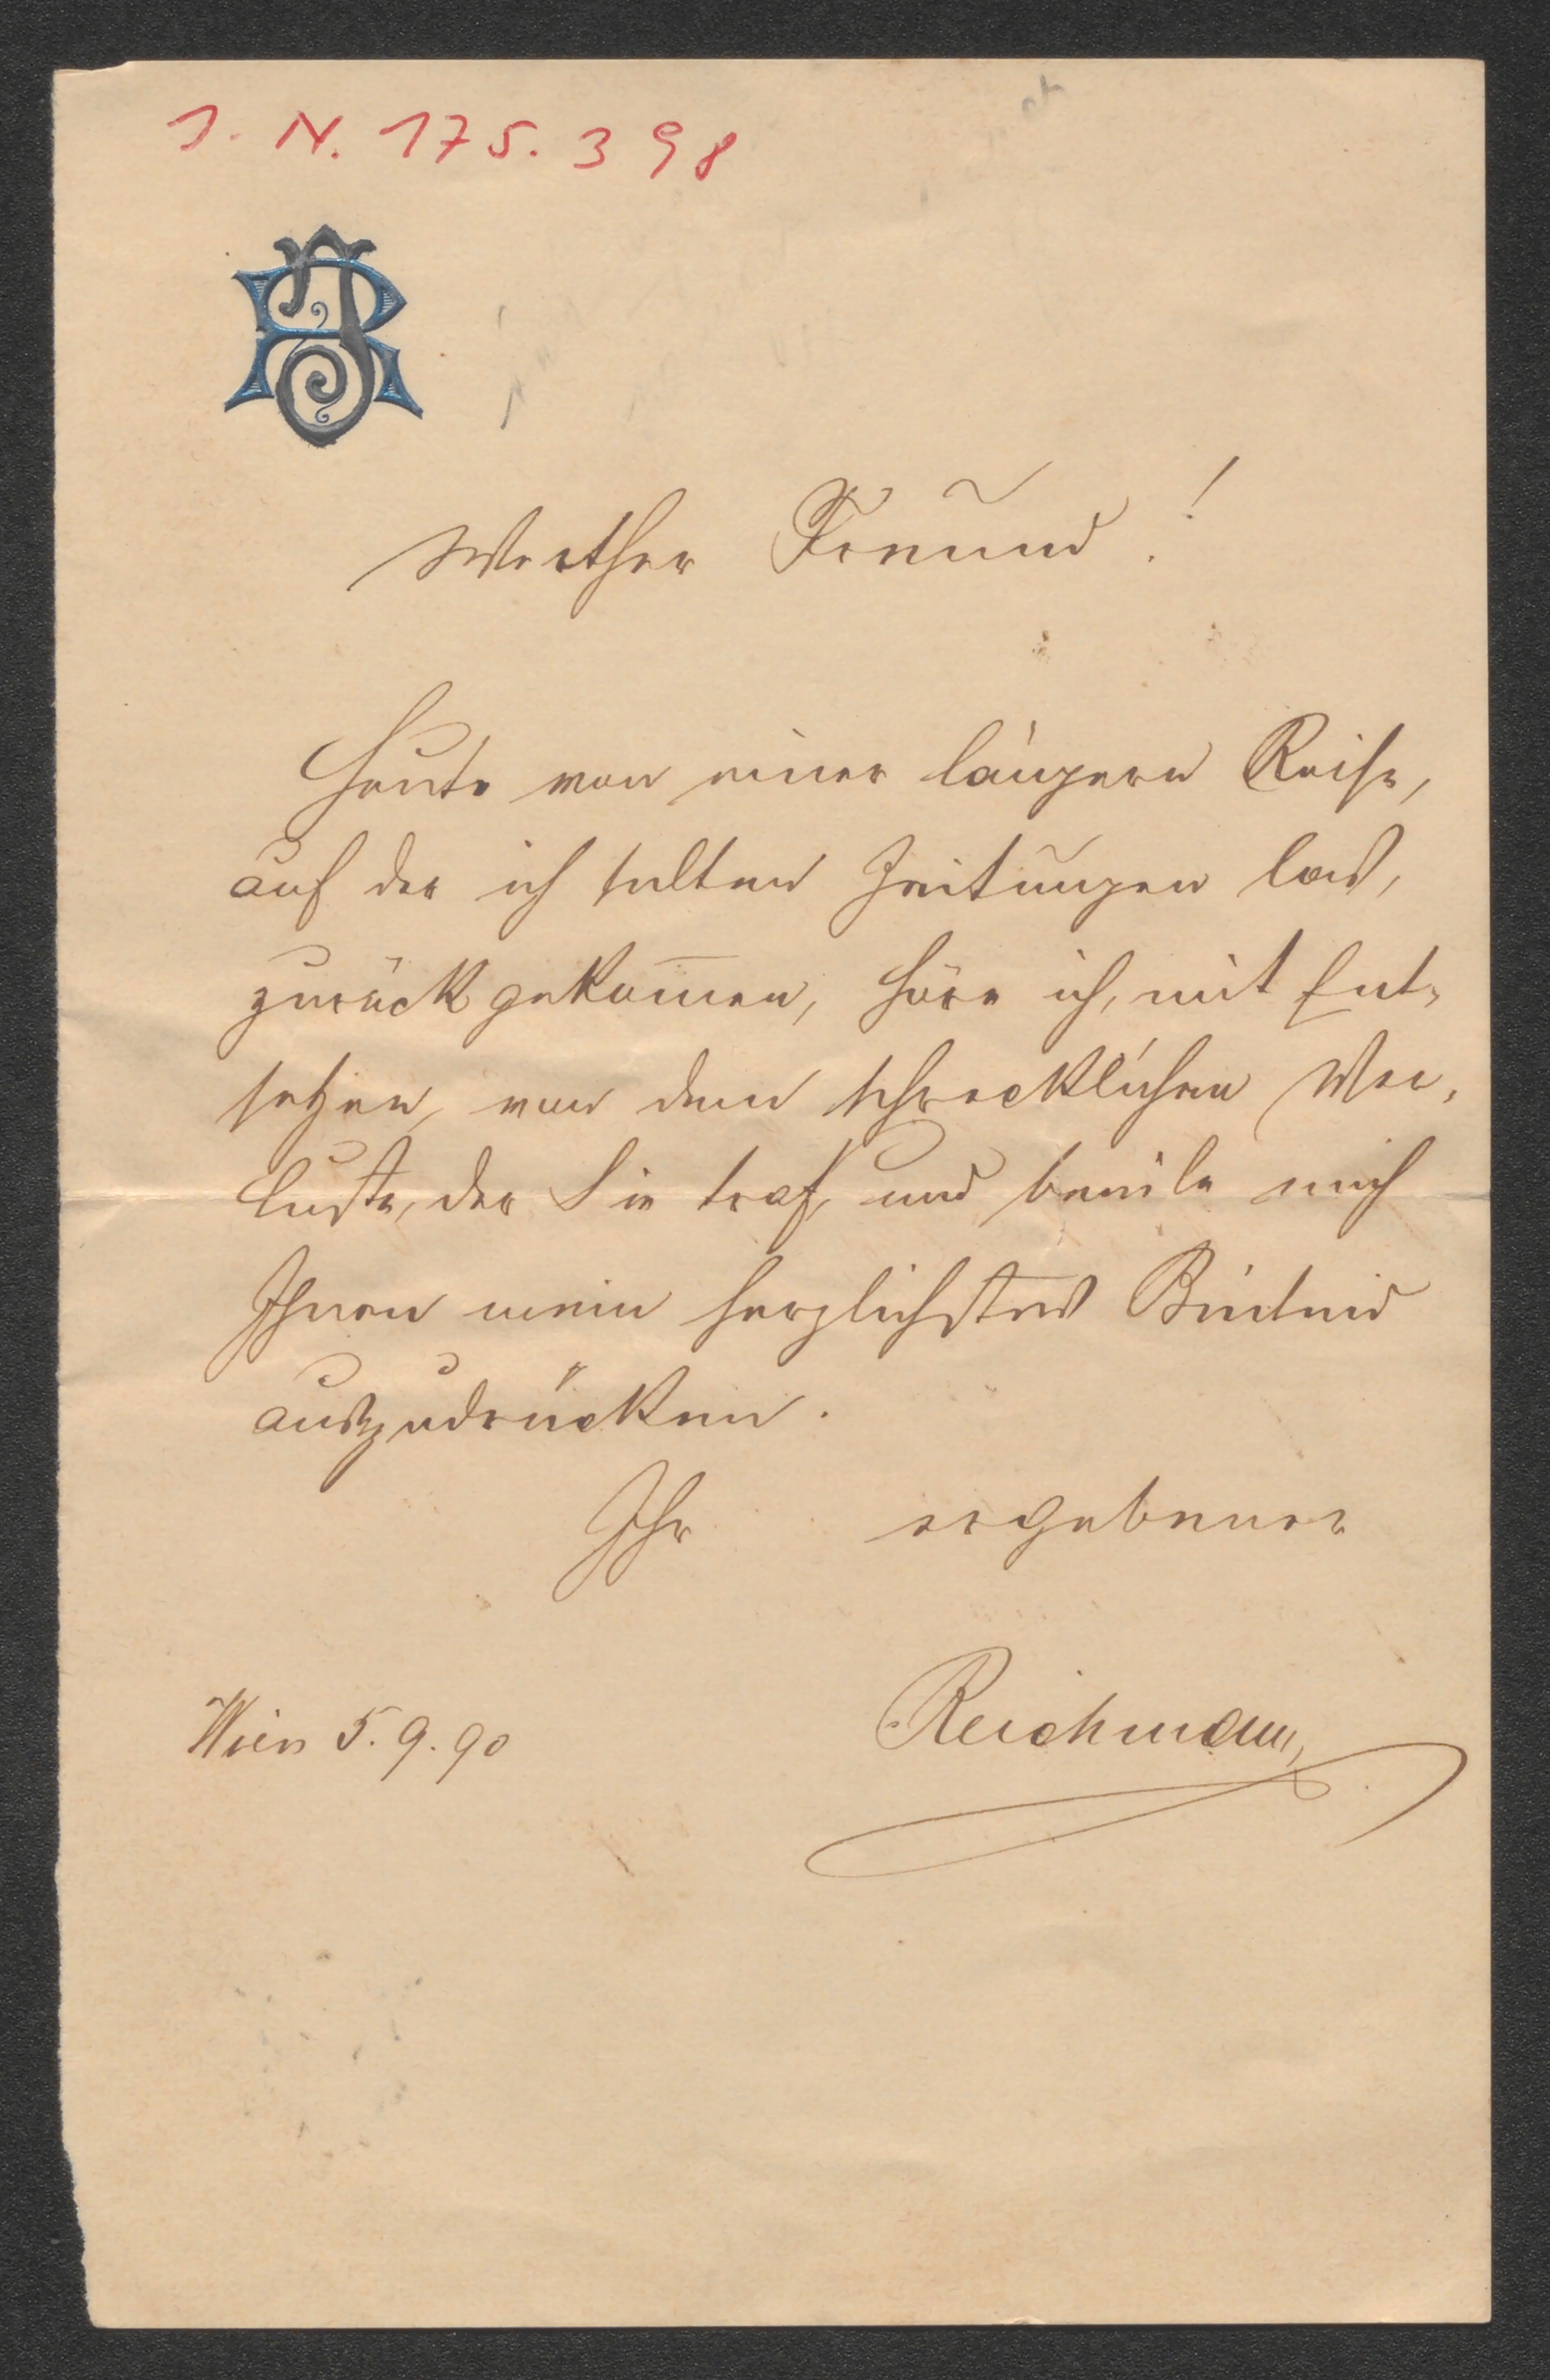 J. N. 175.398
JR
Werther Freund!
Heute von einer längern Reise,
auf der ich selten Zeitungen las,
zurückgekom̅en, höre ich, mit Ent-
setzen, von dem schrecklichen Ver-
luste, der Sie traf, und beeile mich
Ihnen mein herzlichstes Beileid
auszudrücken.
Ihr ergebener
Reichmann
Wien 5.9.90